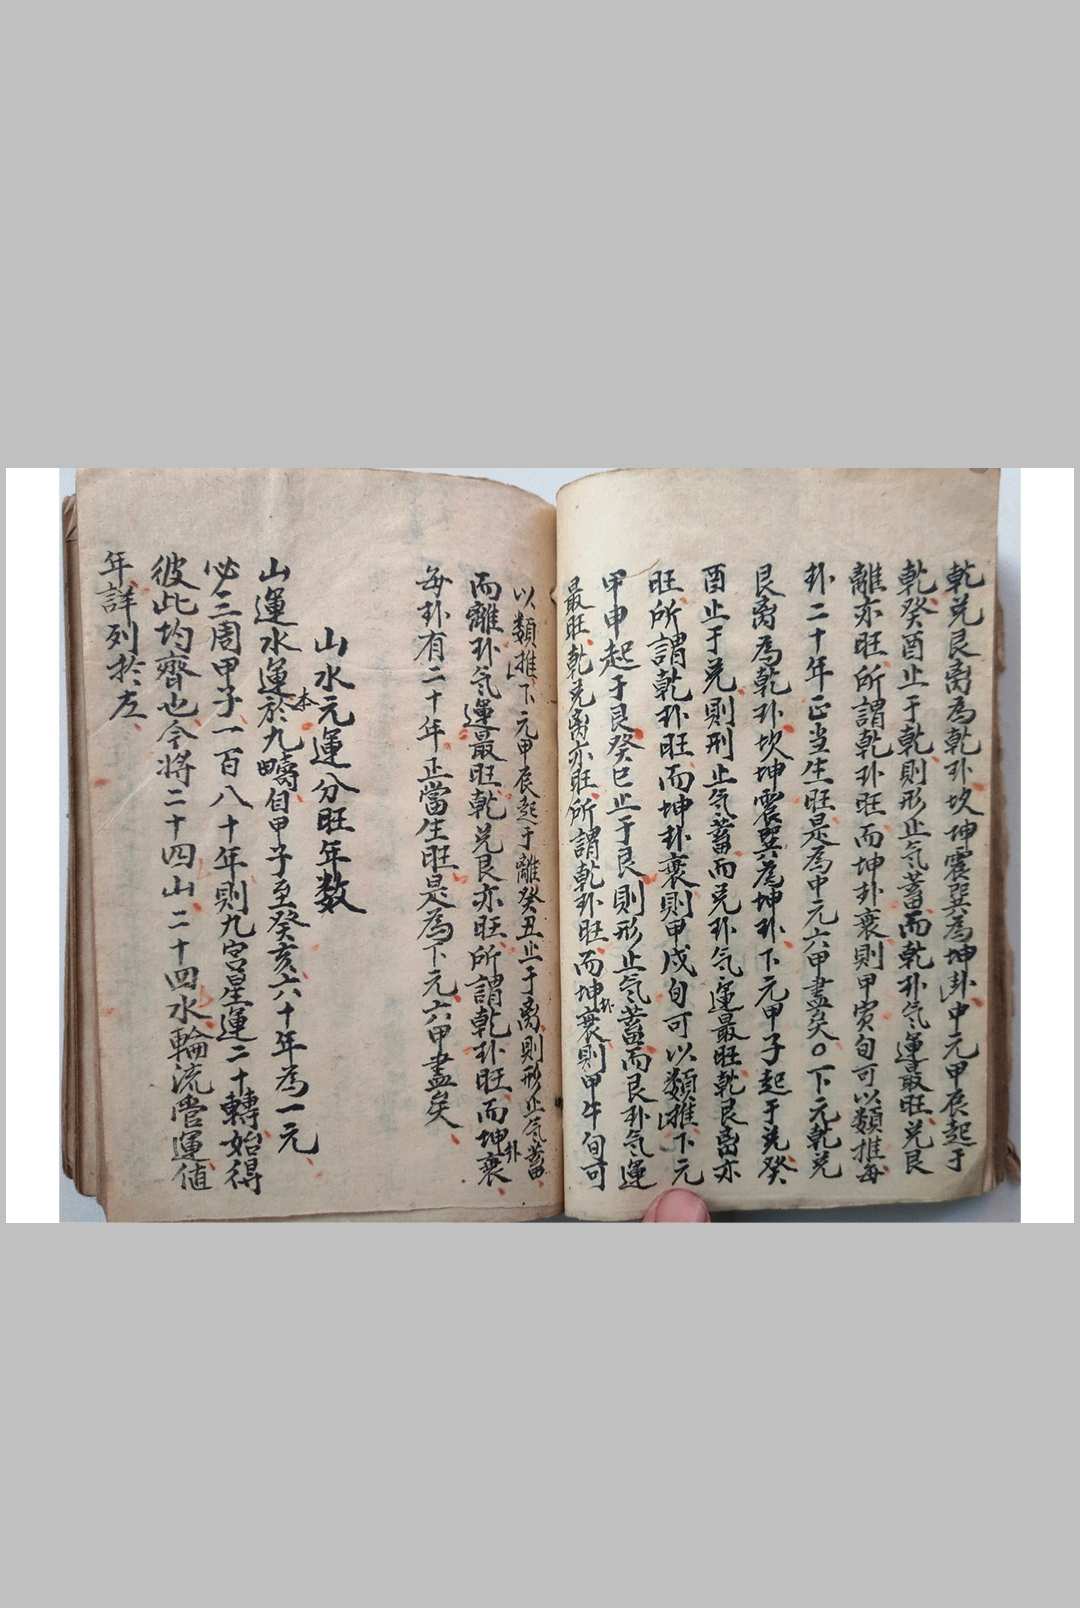 乾兑艮离為乾卦坎坤震巽為坤卦中元甲辰起于
乾癸酉止于乾則形止气蓄而乾卦气運最旺兑艮
離亦旺所謂乾卦旺而坤卦衰則甲寅旬可以類推每
卦二十年正当生旺是為中元六甲盡矣○下元乾兑
艮离為乾卦坎坤震巽為坤卦下元甲子起于兑癸
酉止于兑則形止气蓄而兑卦气運最旺乾艮离亦
旺所謂乾卦旺而坤卦衰則甲戌旬可以類推下元
甲申起于艮癸巳止于艮則形止气蓄而艮卦气運
最旺乾兑离亦旺所謂乾卦旺而坤卦衰則甲午旬可
以類推下元甲辰起于離癸丑止于离則形止气蓄
而離卦气運最旺乾兑艮亦旺所謂乾卦旺而坤卦衰
每卦有二十年正當生旺是為下元六甲盡矣
山水元運分旺年数
山運水運本於九疇自甲子至癸亥六十年為一元
必三周甲子一百八十年則九宮星運二十轉始得
彼此均齊也今將二十四山二十四水輪流當運值
年詳列於左